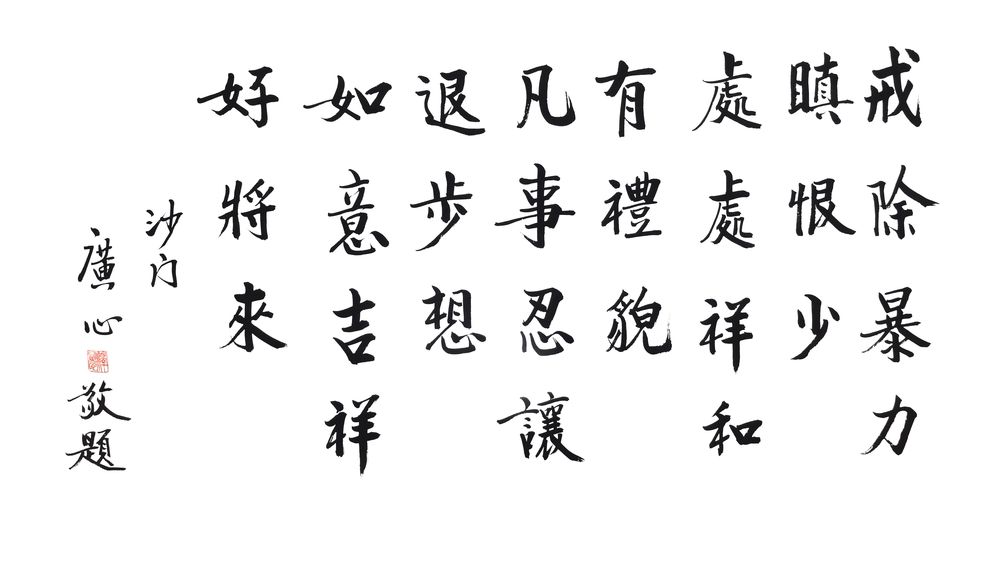 戒除暴力
瞋恨少
處處祥和
有禮貌
凡事忍讓
退步想
如意吉祥
好將來
沙门
廣心敬題